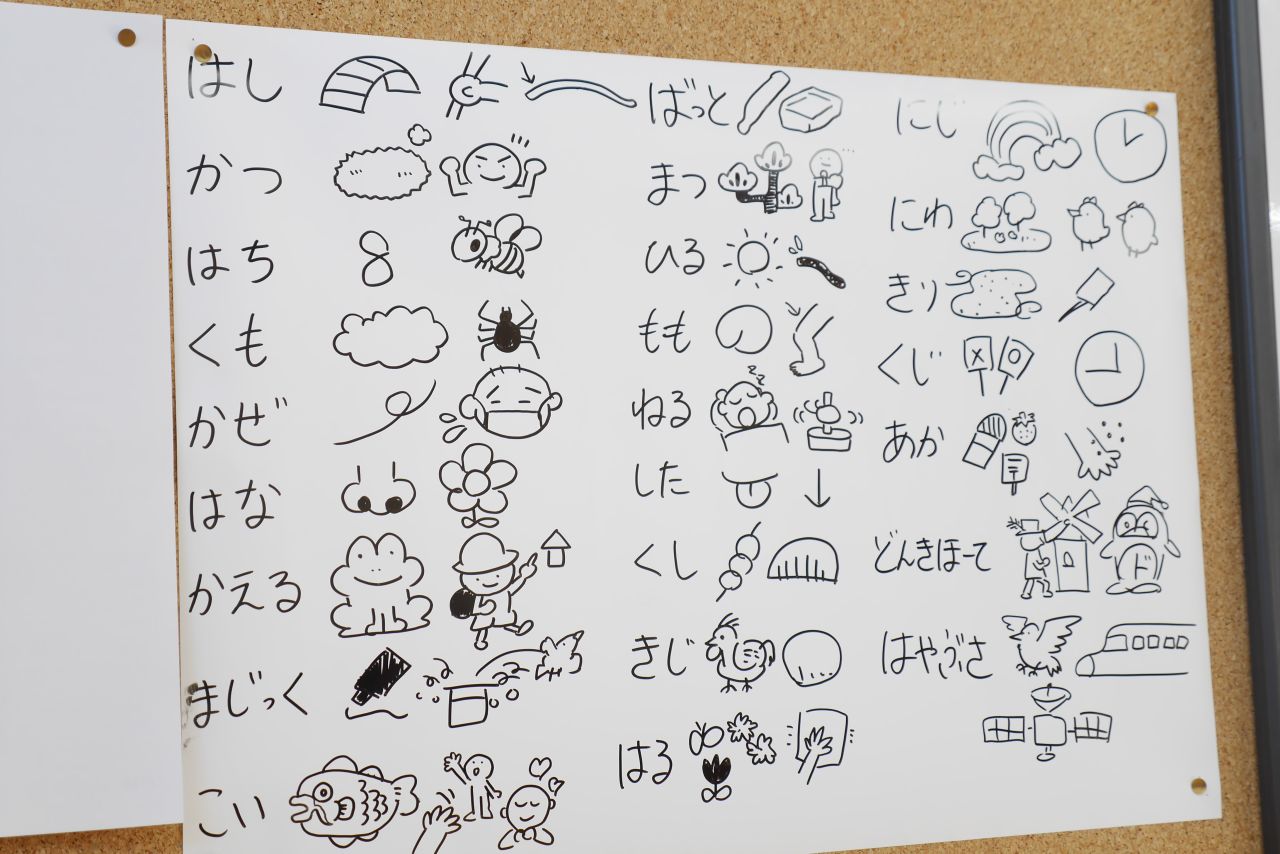 はし
かつ
はち
8
くも
かぜ
はな
かえる
まじっく
こい
ばっと
まつ
ひる
もも
ねる
zz
した
くし
きじ
はる
にじ
にわ
きり
くじ
X O
あか
どんきほーて
ド
はやぶさ